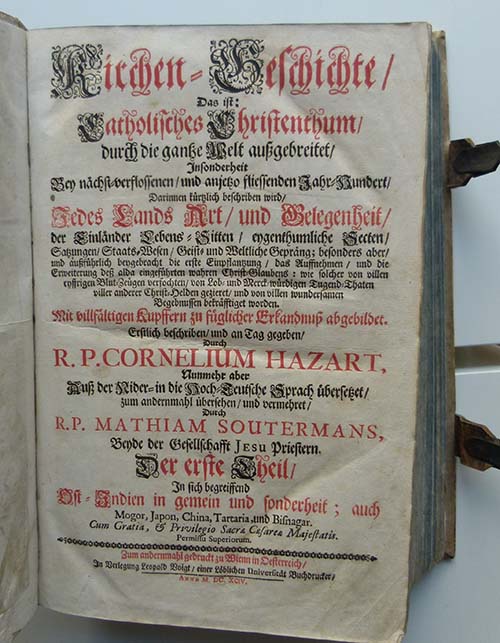 Kirchen-Geschichte/
Das ist:
Catholisches Christenthum/
durch die gantze Welt außgebreitet/
Insonderheit
Bey nächst-verflossenen/ und anjetzo fliessenden Jahr-Hundert/
Darinnen kürtzlich beschriben wird/
Jedes Lands Art/ und Gelegenheit/
der Einländer Lebens-Sitten/ eygenthumliche Secten/
Satzungen/ Staats-Wesen/ Geist- und Weltliche Gepräng; besonders aber/
und außführlich beygebracht die erste Einpflantzung/ das Auffnehmen/ und die
Erweiterung deß alda eingeführten wahren Christ-Glaubens: wie solcher von villen
eyffrigen Blut-Zeugen verfochten/ von Lob- und Merck-würdigen Tugend-Thaten
viller anderer Christ-Helden gezieret/ und von villen wundersamen
Begebnussen bekräfftiget worden.
Mit villfältigen Kupffern zu füglicher Erkandnuß abgebildet.
Erstlich beschriben/ und an Tag gegeben/
Durch
R. P. CORNELIUM HAZART,
Nunmehr aber
Auß der Nider- in die Hoch-Teutsche Sprach übersetzet/
zum andernmahl übersehen/ und vermehret/
Durch
R. P. MATHIAM SOUTERMANS,
Beyde der Gesellschafft JESU Priestern.
Der erste Theil/
In sich begreiffend
Ost-Indien in gemein und sonderheit; auch
Mogor, Japon, China, Tartaria, und Bisnagar.
Cum Gratia, & Privilegio Sacræ Cæsareæ Majestatis.
Permissu Superiorum.
Zum andernmahl gedruckt zu Wienn in Oesterreich/
In Verlegung Leopold Voigt/ einer Löblichen Universität Buchdrucker/
ANNO M. DC. XCIV.